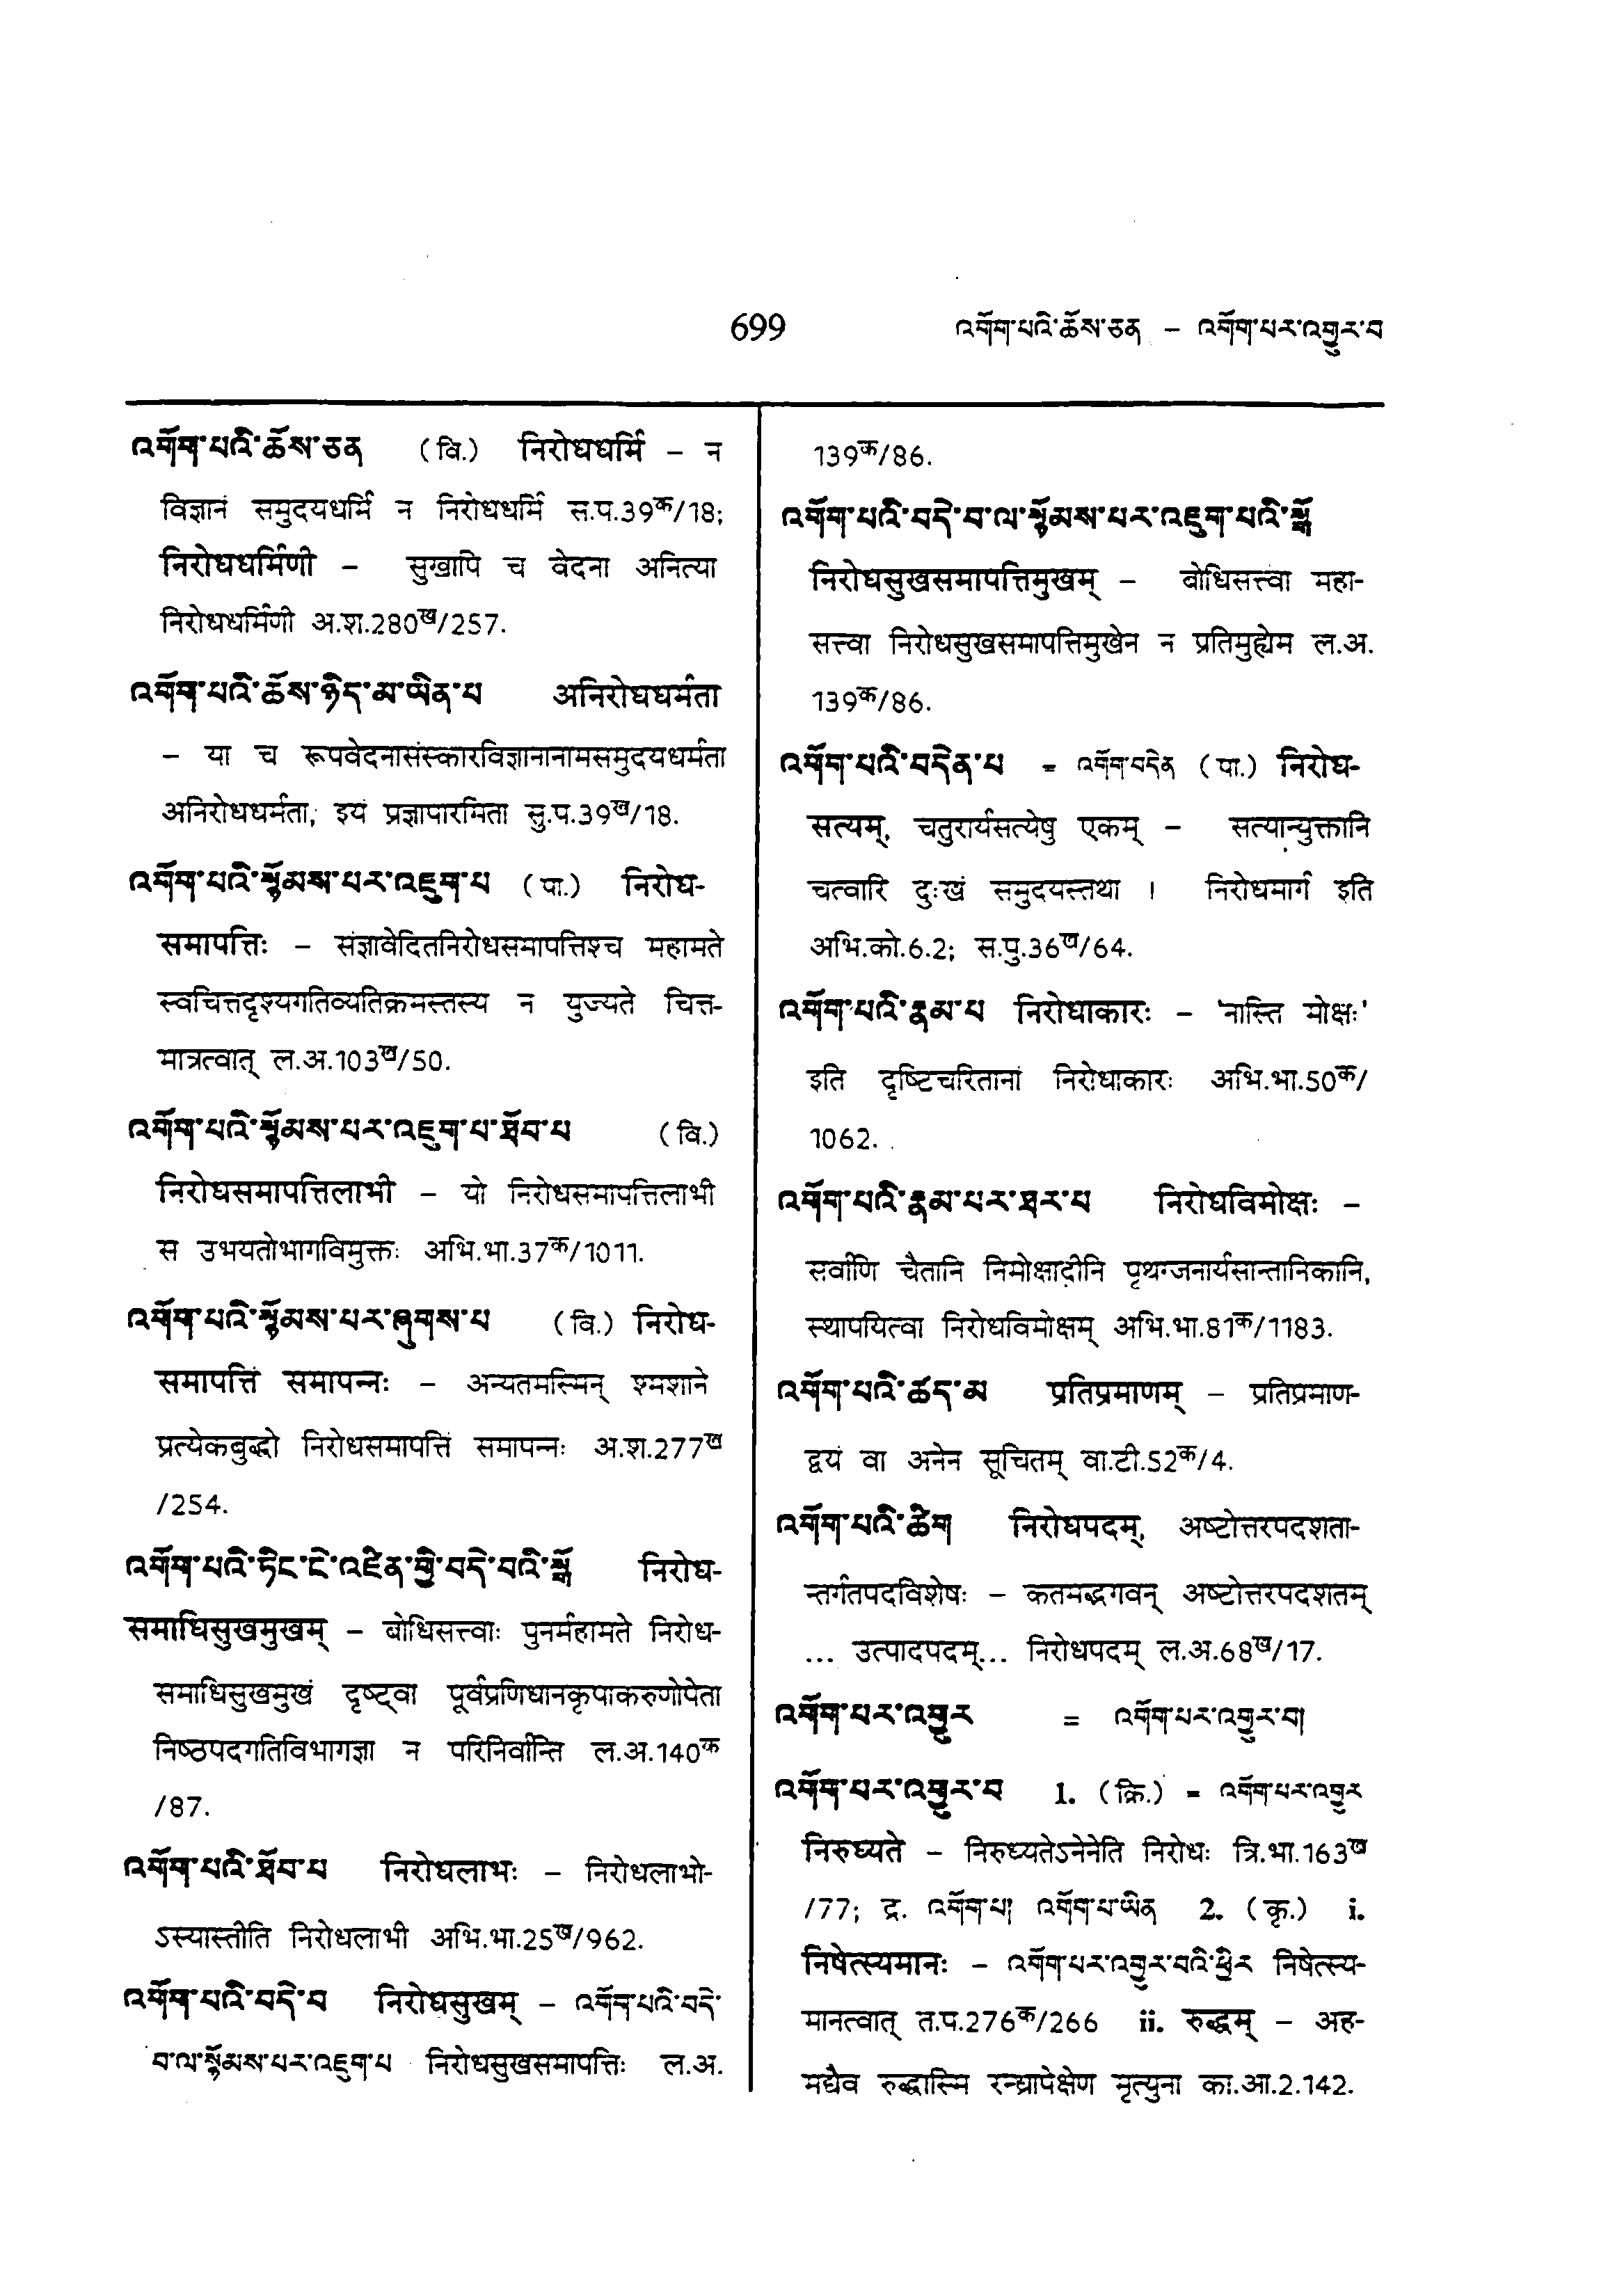 699
འགོག་པའི་ཆོས་ཅན – འགོག་པར་འགྱུར་བ
འགོག་པའི་ཆོས་ཅན (वि.) निरोधधर्मि – न
विज्ञानं समुदयधर्मि न निरोधधर्मि स.प.39क/18;
निरोधधर्मिणी – सुखापि च वेदना अनित्या
निरोधधर्मिणी अ.श.280ख/257.
འགོག་པའི་ཆོས་ཉིད་མ་ཡིན་པ अनिरोधधर्मता
– या च रूपवेदनासंस्कारविज्ञानानामसमुदयधर्मता
अनिरोधधर्मता, इयं प्रज्ञापारमिता सु.प.39ख/18.
འགོག་པའི་སྙོམས་པར་འཇུག་པ (पा.) निरोध-
समापत्तिः – संज्ञावेदितनिरोधसमापत्तिश्च महामते
स्वचित्तदृश्यगतिव्यतिक्रमस्तस्य न युज्यते चित्त-
मात्रत्वात् ल.अ.103ख/50.
འགོག་པའི་སྙོམས་པར་འཇུག་པ་ཐོབ་པ (वि.)
निरोधसमापत्तिलाभी – यो निरोधसमापत्तिलाभी
स उभयतोभागविमुक्तः अभि.भा.37क/1011.
འགོག་པའི་སྙོམས་པར་ཞུགས་པ (वि.) निरोध-
समापत्तिं समापन्नः – अन्यतमस्मिन् श्मशाने
प्रत्येकबुद्धो निरोधसमापत्तिं समापन्नः अ.श.277ख
/254.
འགོག་པའི་ཏིང་ངེ་འཛིན་གྱི་བདེ་བའི་སྒོ निरोध-
समाधिसुखमुखम् – बोधिसत्त्वाः पुनर्महामते निरोध-
समाधिसुखमुखं दृष्ट्वा पूर्वप्रणिधानकृपाकरुणोपेता
निष्ठपदगतिविभागज्ञा न परिनिर्वान्ति ल.अ.140क
/87.
འགོག་པའི་ཐོབ་པ निरोधलाभः – निरोधलाभो-
ऽस्यास्तीति निरोधलाभी अभि.भा.25ख/962.
འགོག་པའི་བདེ་བ निरोधसुखम् – འགོག་པའི་བདེ་
བ་ལ་སྙོམས་པར་འཇུག་པ निरोधसुखसमापत्तिः ल.अ.
139क/86.
འགོག་པའི་བདེ་བ་ལ་སྙོམས་པར་འཇུག་པའི་སྒོ
निरोधसुखसमापत्तिमुखम् – बोधिसत्त्वा महा-
सत्त्वा निरोधसुखसमापत्तिमुखेन न प्रतिमुह्येम ल.अ.
139क/86.
འགོག་པའི་བདེན་པ = འགོག་བདེན (पा.) निरोध-
सत्यम्, चतुरार्यसत्येषु एकम् – सत्यान्युक्तानि
चत्वारि दुःखं समुदयस्तथा । निरोधमार्ग इति
अभि.को.6.2; स.पु.36ख/64.
འགོག་པའི་རྣམ་པ निरोधाकारः – 'नास्ति मोक्षः'
इति दृष्टिचरितानां निरोधाकारः अभि.भा.50क/
1062.
འགོག་པའི་རྣམ་པར་ཐར་པ निरोधविमोक्षः –
सर्वाणि चैतानि निमोक्षादीनि पृथग्जनार्यसान्तानिकानि,
स्थापयित्वा निरोधविमोक्षम् अभि.भा.81क/1183.
འགོག་པའི་ཚད་མ प्रतिप्रमाणम् – प्रतिप्रमाण-
द्वयं वा अनेन सूचितम् वा.टी.52क/4.
འགོག་པའི་ཚིག निरोधपदम्, अष्टोत्तरपदशता-
न्तर्गतपदविशेषः – कतमद्भगवन् अष्टोत्तरपदशतम्
... उत्पादपदम्... निरोधपदम् ल.अ.68ख/17.
འགོག་པར་འགྱུར = འགོག་པར་འགྱུར་བ།
འགོག་པར་འགྱུར་བ 1. (क्रि.) = འགོག་པར་འགྱུར
निरुध्यते – निरुध्यतेऽनेनेति निरोधः त्रि.भा.163ख
/77; द्र. འགོག་པ། འགོག་པ་ཡིན 2. (कृ.) i.
निषेत्स्यमानः – འགོག་པར་འགྱུར་བའི་ཕྱིར निषेत्स्य-
मानत्वात् त.प.276क/266 ii. रुद्धम् – अह-
मद्यैव रुद्धास्मि रन्ध्रापेक्षेण मृत्युना का.आ.2.142.